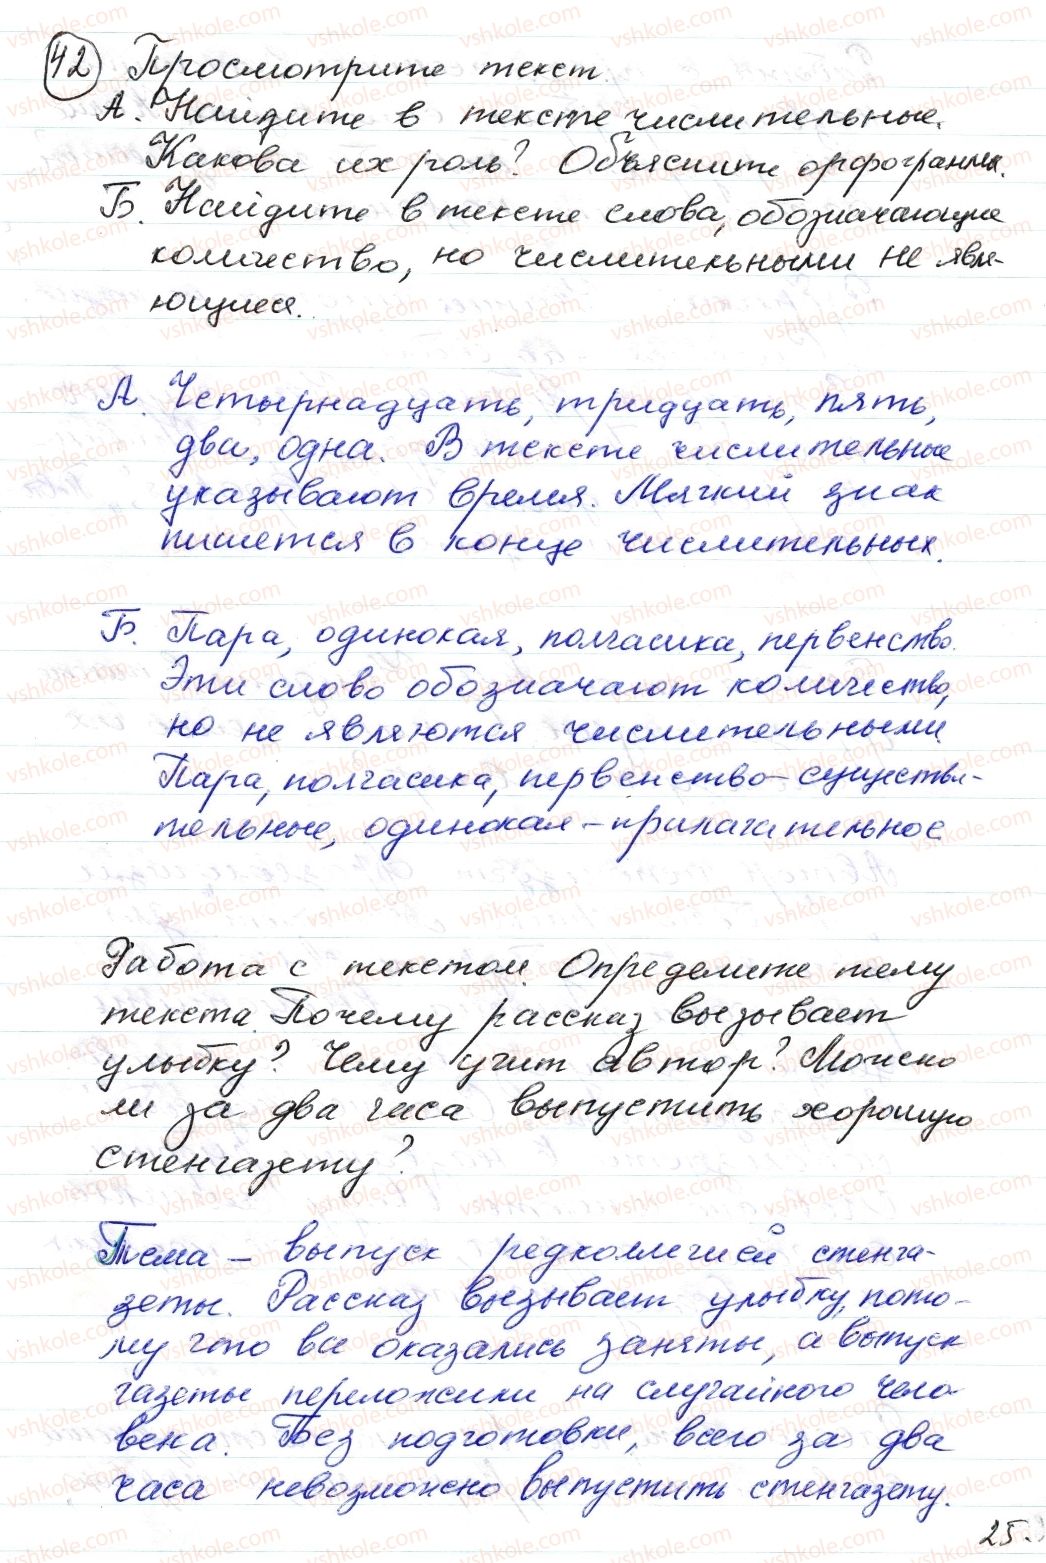 42 Просмотрите текст.
А. Найдите в тексте числительные.
Какова их роль? Объясните орфограммы.
Б. Найдите в тексте слова, обозначающие
количество, но числительными не явля-
ющиеся.
А. Четырнадцать, тридцать, пять,
два, одна. В тексте числительные
указывают время. Мягкий знак
пишется в конце числительных.
Б. Пара, одинокая, полчасика, первенство.
Эти слово обозначают количество,
но не являются числительными.
Пара, полчасика, первенство - существи-
тельные, одинокая - прилагательное
Работа с текстом. Определите тему
текста. Почему рассказ вызывает
улыбку? Чему учит автор? Можно
ли за два часа выпустить хорошую
стенгазету?
Тема - выпуск редколлегией стенга-
зеты. Рассказ вызывает улыбку, пото-
му что все оказались заняты, а выпуск
газеты переложили на случайного чело-
века. Без подготовки, всего за два
часа невозможно выпустить стенгазету.
25.